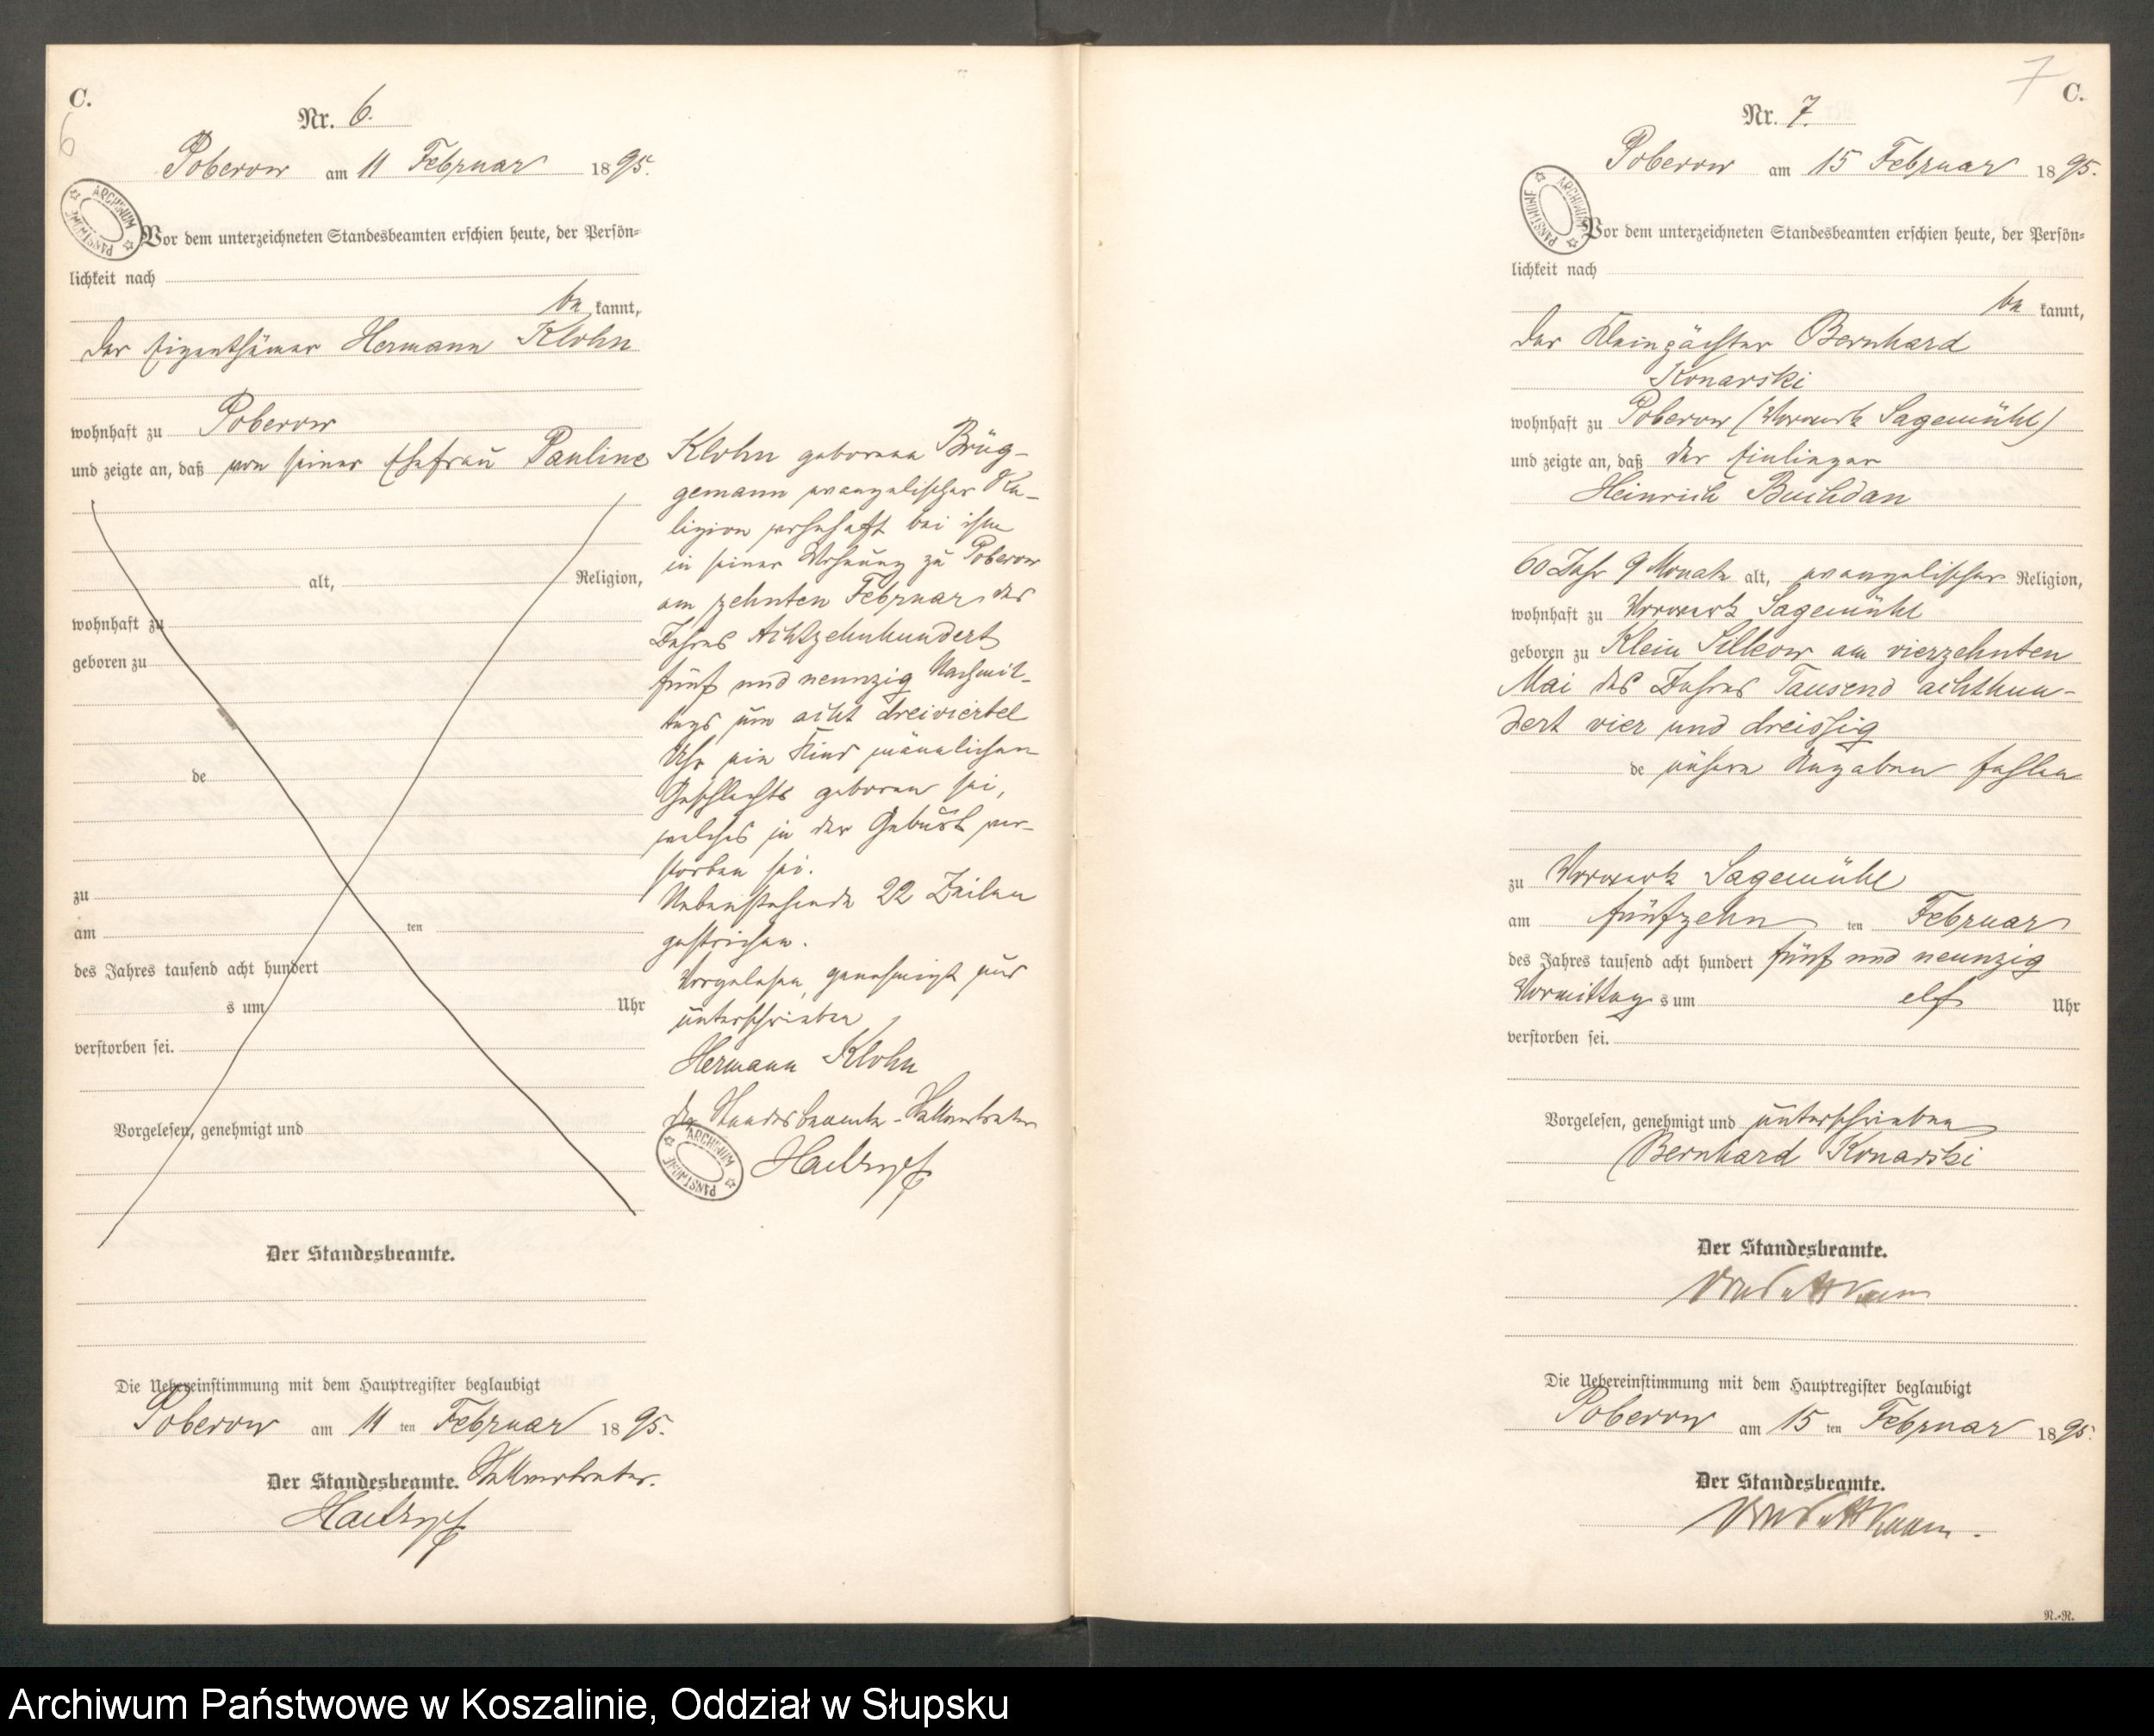 C.
6
Nr. 6.
Poberow am 11 Februar 1895.
ARCHIWUM PAŃSTWOWE
Vor dem unterzeichneten Standesbeamten erschien heute, der Persön=
lichkeit nach
be kannt,
der Eigenthümer Hermann Klohn
wohnhaft zu Poberow
und zeigte an, daß von seiner Ehefrau Pauline
alt, Religion,
wohnhaft zu
geboren zu
de
zu
am ten
des Jahres tausend acht hundert
s um Uhr
verstorben sei.
Vorgelesen, genehmigt und
Der Standesbeamte.
Die Uebereinstimmung mit dem Hauptregister beglaubigt
Poberow am 11 ten Februar 1895.
Der Standesbeamte. Stellvertreter.
Klohn geborene Brüg-
gemann evangelischer Re-
ligion wohnhaft bei ihm
in seiner Wohnung zu Poberow
am zehnten Februar des
Jahres Achtzehnhundert
fünf und neunzig Nachmit-
tags um acht dreiviertel
Uhr ein Kind männlichen
Geschlechts geboren sei,
welches in der Geburt ver-
storben sei.
Nebenstehende 22 Zeilen
gestrichen.
Vorgelesen, genehmigt und
unterschrieben
Hermann Klohn
Der Standesbeamte - Stellvertreter
ARCHIWUM PAŃSTWOWE
7 C.
Nr. 7.
Poberow am 15 Februar 1895.
ARCHIWUM PAŃSTWOWE
Vor dem unterzeichneten Standesbeamten erschien heute, der Persön=
lichkeit nach
be kannt,
der Kleinpächter Bernhard
Konarski
wohnhaft zu Poberow (Vorwerk Sagemühl)
und zeigte an, daß der Einlieger
Heinrich Buchdan
60 Jahr 9 Monate alt, evangelischer Religion,
wohnhaft zu Vorwerk Sagemühl
geboren zu Klein Silkow am vierzehnten
Mai des Jahres Tausend achthun-
dert vier und dreissig
de nähere Angaben fehlen
zu Vorwerk Sagemühl
am fünfzehn ten Februar
des Jahres tausend acht hundert fünf und neunzig
Vormittag s um elf Uhr
verstorben sei.
Vorgelesen, genehmigt und unterschrieben
Bernhard Konarski
Der Standesbeamte.
Die Uebereinstimmung mit dem Hauptregister beglaubigt
Poberow am 15 ten Februar 1895.
Der Standesbeamte.
N.-N.
Archiwum Państwowe w Koszalinie, Oddział w Słupsku